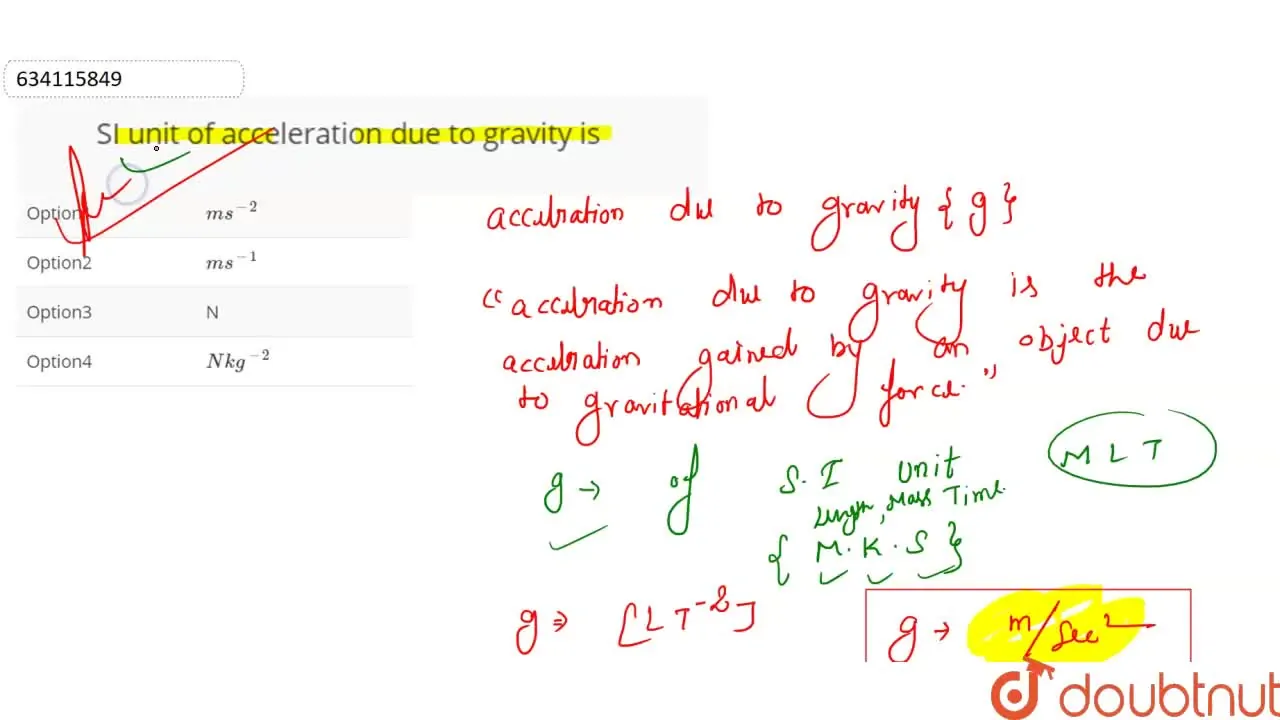 634115849
SI unit of acceleration due to gravity is
Option ms⁻²
Option2 ms⁻¹
Option3 N
Option4 Nkg⁻²
accelration due to gravity { g }
“accelration due to gravity is the
accelration gained by an object due
to gravitational force."
g → of S. I Unit
M L T
Length, Mass Time.
{ M. K. S }
g ⇒ [LT⁻²]
g → m/Sec²
doubtnut